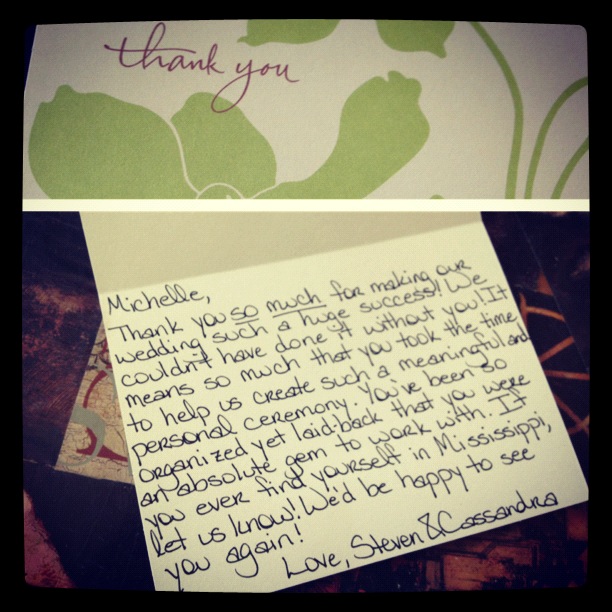 thank you
Michelle,
Thank you so much for making our
wedding such a huge success! We
couldn't have done it without you! It
means so much that you took the time
to help us create such a meaningful and
personal ceremony. You've been so
organized yet laid-back that you were
an absolute gem to work with. If
you ever find yourself in Mississippi,
let us know! We'd be happy to see
you again!
Love, Steven & Cassandra